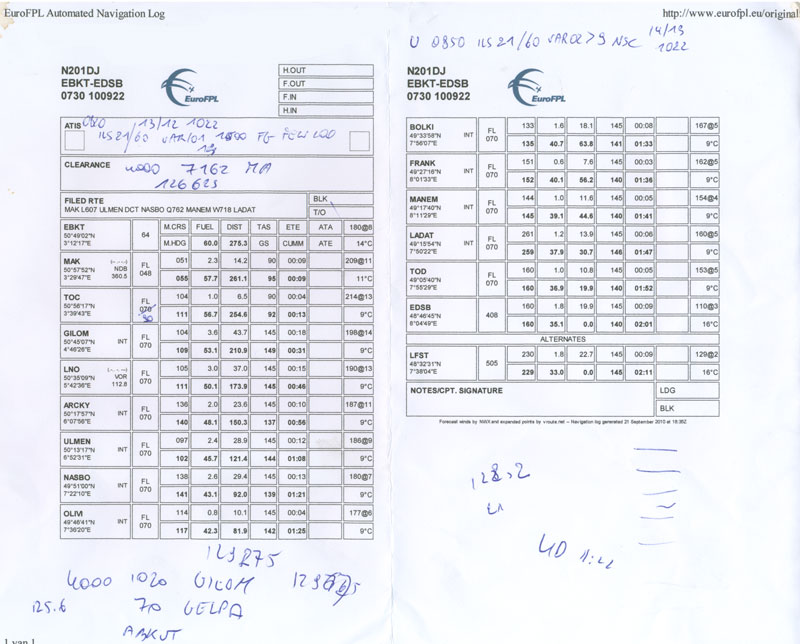 EuroFPL Automated Navigation Log
http://www.eurofpl.eu/original
N201DJ
EBKT-EDSB
0730 100922
EuroFPL
H.OUT
F.OUT
F.IN
H.IN
ATIS
13/12 1022
ILS21/60 VAR/01 1800 FG
CLEARANCE
4000 7162 MA
126625
FILED RTE
MAK L607 ULMEN DCT NASBO Q762 MANEM W718 LADAT
BLK
T/O
EBKT 64 M.CRS FUEL DIST TAS ETE ATA 180@8
50°49'02"N
3°12'17"E M.HDG 60.0 275.3 GS CUMM ATE 14°C
MAK (-.-.--) FL 051 2.3 14.2 90 00:09 209@11
50°57'52"N NDB 048
3°29'47"E 360.5 055 57.7 261.1 95 00:09 11°C
TOC FL 104 1.0 6.5 90 00:04 214@13
50°56'17"N 070
3°39'43"E 90 111 56.7 254.6 92 00:13 9°C
GILOM FL 104 3.6 43.7 145 00:18 198@14
50°45'07"N INT 070
4°46'26"E 109 53.1 210.9 149 00:31 9°C
LNO FL 105 3.0 37.0 145 00:15 190@13
50°35'09"N VOR 070
5°42'36"E 112.8 111 50.1 173.9 145 00:46 9°C
ARCKY FL 136 2.0 23.6 145 00:10 187@11
50°17'57"N INT 070
6°07'56"E 140 48.1 150.3 137 00:56 9°C
ULMEN FL 097 2.4 28.9 145 00:12 186@9
50°13'17"N INT 070
6°52'31"E 102 45.7 121.4 144 01:08 9°C
NASBO FL 138 2.6 29.4 145 00:13 180@7
49°51'00"N INT 070
7°22'10"E 141 43.1 92.0 139 01:21 9°C
OLIVI FL 114 0.8 10.1 145 00:04 177@6
49°46'41"N INT 070
7°36'20"E 117 42.3 81.9 142 01:25 9°C
129275
4000 1020 GILOM
125.6 70 GELPA
ABKUT
0850 ILS21/60 VAR02>9 NSC 14/13
1022
N201DJ
EBKT-EDSB
0730 100922
EuroFPL
BOLKI FL 133 1.6 18.1 145 00:08 167@5
49°33'58"N INT 070
7°56'07"E 135 40.7 63.8 141 01:33 9°C
FRANK FL 151 0.6 7.6 145 00:03 162@5
49°27'16"N INT 070
8°01'33"E 152 40.1 56.2 140 01:36 9°C
MANEM FL 144 1.0 11.6 145 00:05 154@4
49°17'40"N INT 070
8°11'29"E 145 39.1 44.6 140 01:41 9°C
LADAT FL 261 1.2 13.9 145 00:06 160@5
49°15'54"N INT 070
7°50'22"E 259 37.9 30.7 146 01:47 9°C
TOD FL 160 1.0 10.8 145 00:05 153@5
49°05'40"N 070
7°55'29"E 160 36.9 19.9 140 01:52 9°C
EDSB 408 160 1.8 19.9 145 00:09 110@3
48°46'45"N
8°04'49"E 160 35.1 0.0 140 02:01 16°C
ALTERNATES
LFST 505 230 1.8 22.7 145 00:09 129@2
48°32'31"N
7°38'04"E 229 33.0 0.0 145 02:11 16°C
NOTES/CPT. SIGNATURE
LDG
BLK
Forecast winds by NWX and expanded points by vroute.net -- Navigation log generated 21 September 2010 at 18:36Z
40 11:22